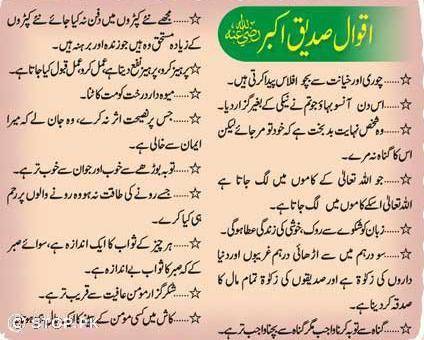 اقوال صدیق اکبر رضی اللہ عنہ
☆..... چوری اور خیانت سے بچو افلاس پیدا کرتی ہیں۔
☆..... اس دن آنسو بہاؤ جو تم نے نیکی کے بغیر گزار دیا۔
☆..... وہ شخص نہایت بدبخت ہے کہ خود تو مر جائے لیکن
اس کا گناہ نہ مرے۔
☆..... جو اللہ تعالیٰ کے کاموں میں لگ جاتا ہے
اللہ تعالیٰ اسکے کاموں میں لگ جاتا ہے۔
☆..... زبان کو شکوے سے روک، خوشی کی زندگی عطا ہوگی۔
☆..... سو درہم میں سے اڑھائی درہم غریبوں اور دنیا
داروں کی زکوٰۃ ہے اور صدیقوں کی زکوٰۃ تمام مال کا
صدقہ کر دینا ہے۔
☆..... گناہ سے توبہ کرنا واجب مگر گناہ سے بچنا واجب تر ہے۔
☆..... مجھے نئے کپڑوں میں دفن نہ کیا جائے نئے کپڑوں
کے زیادہ مستحق وہ ہیں جو زندہ اور برہنہ ہیں۔
☆..... پرہیز کرو، پرہیز نفع دیتا ہے، عمل کرو، عمل قبول کیا جاتا ہے۔
☆..... میوہ دار درخت کو مت کاٹنا۔
☆..... جس پر نصیحت اثر نہ کرے، وہ جان لے کہ میرا
ایمان سے خالی ہے۔
☆..... توبہ بوڑھے سے خوب اور جوان سے خوب تر ہے۔
☆..... جسے رونے کی طاقت نہ ہو وہ رونے والوں پر رحم
ہی کیا کرے۔
☆..... ہر چیز کے ثواب کا ایک اندازہ ہے، سوائے صبر
کے کہ صبر کا ثواب بے اندازہ ہے۔
☆..... شکر گزار مومن عافیت سے قریب تر ہے۔
☆..... کاش میں کسی مومن کے